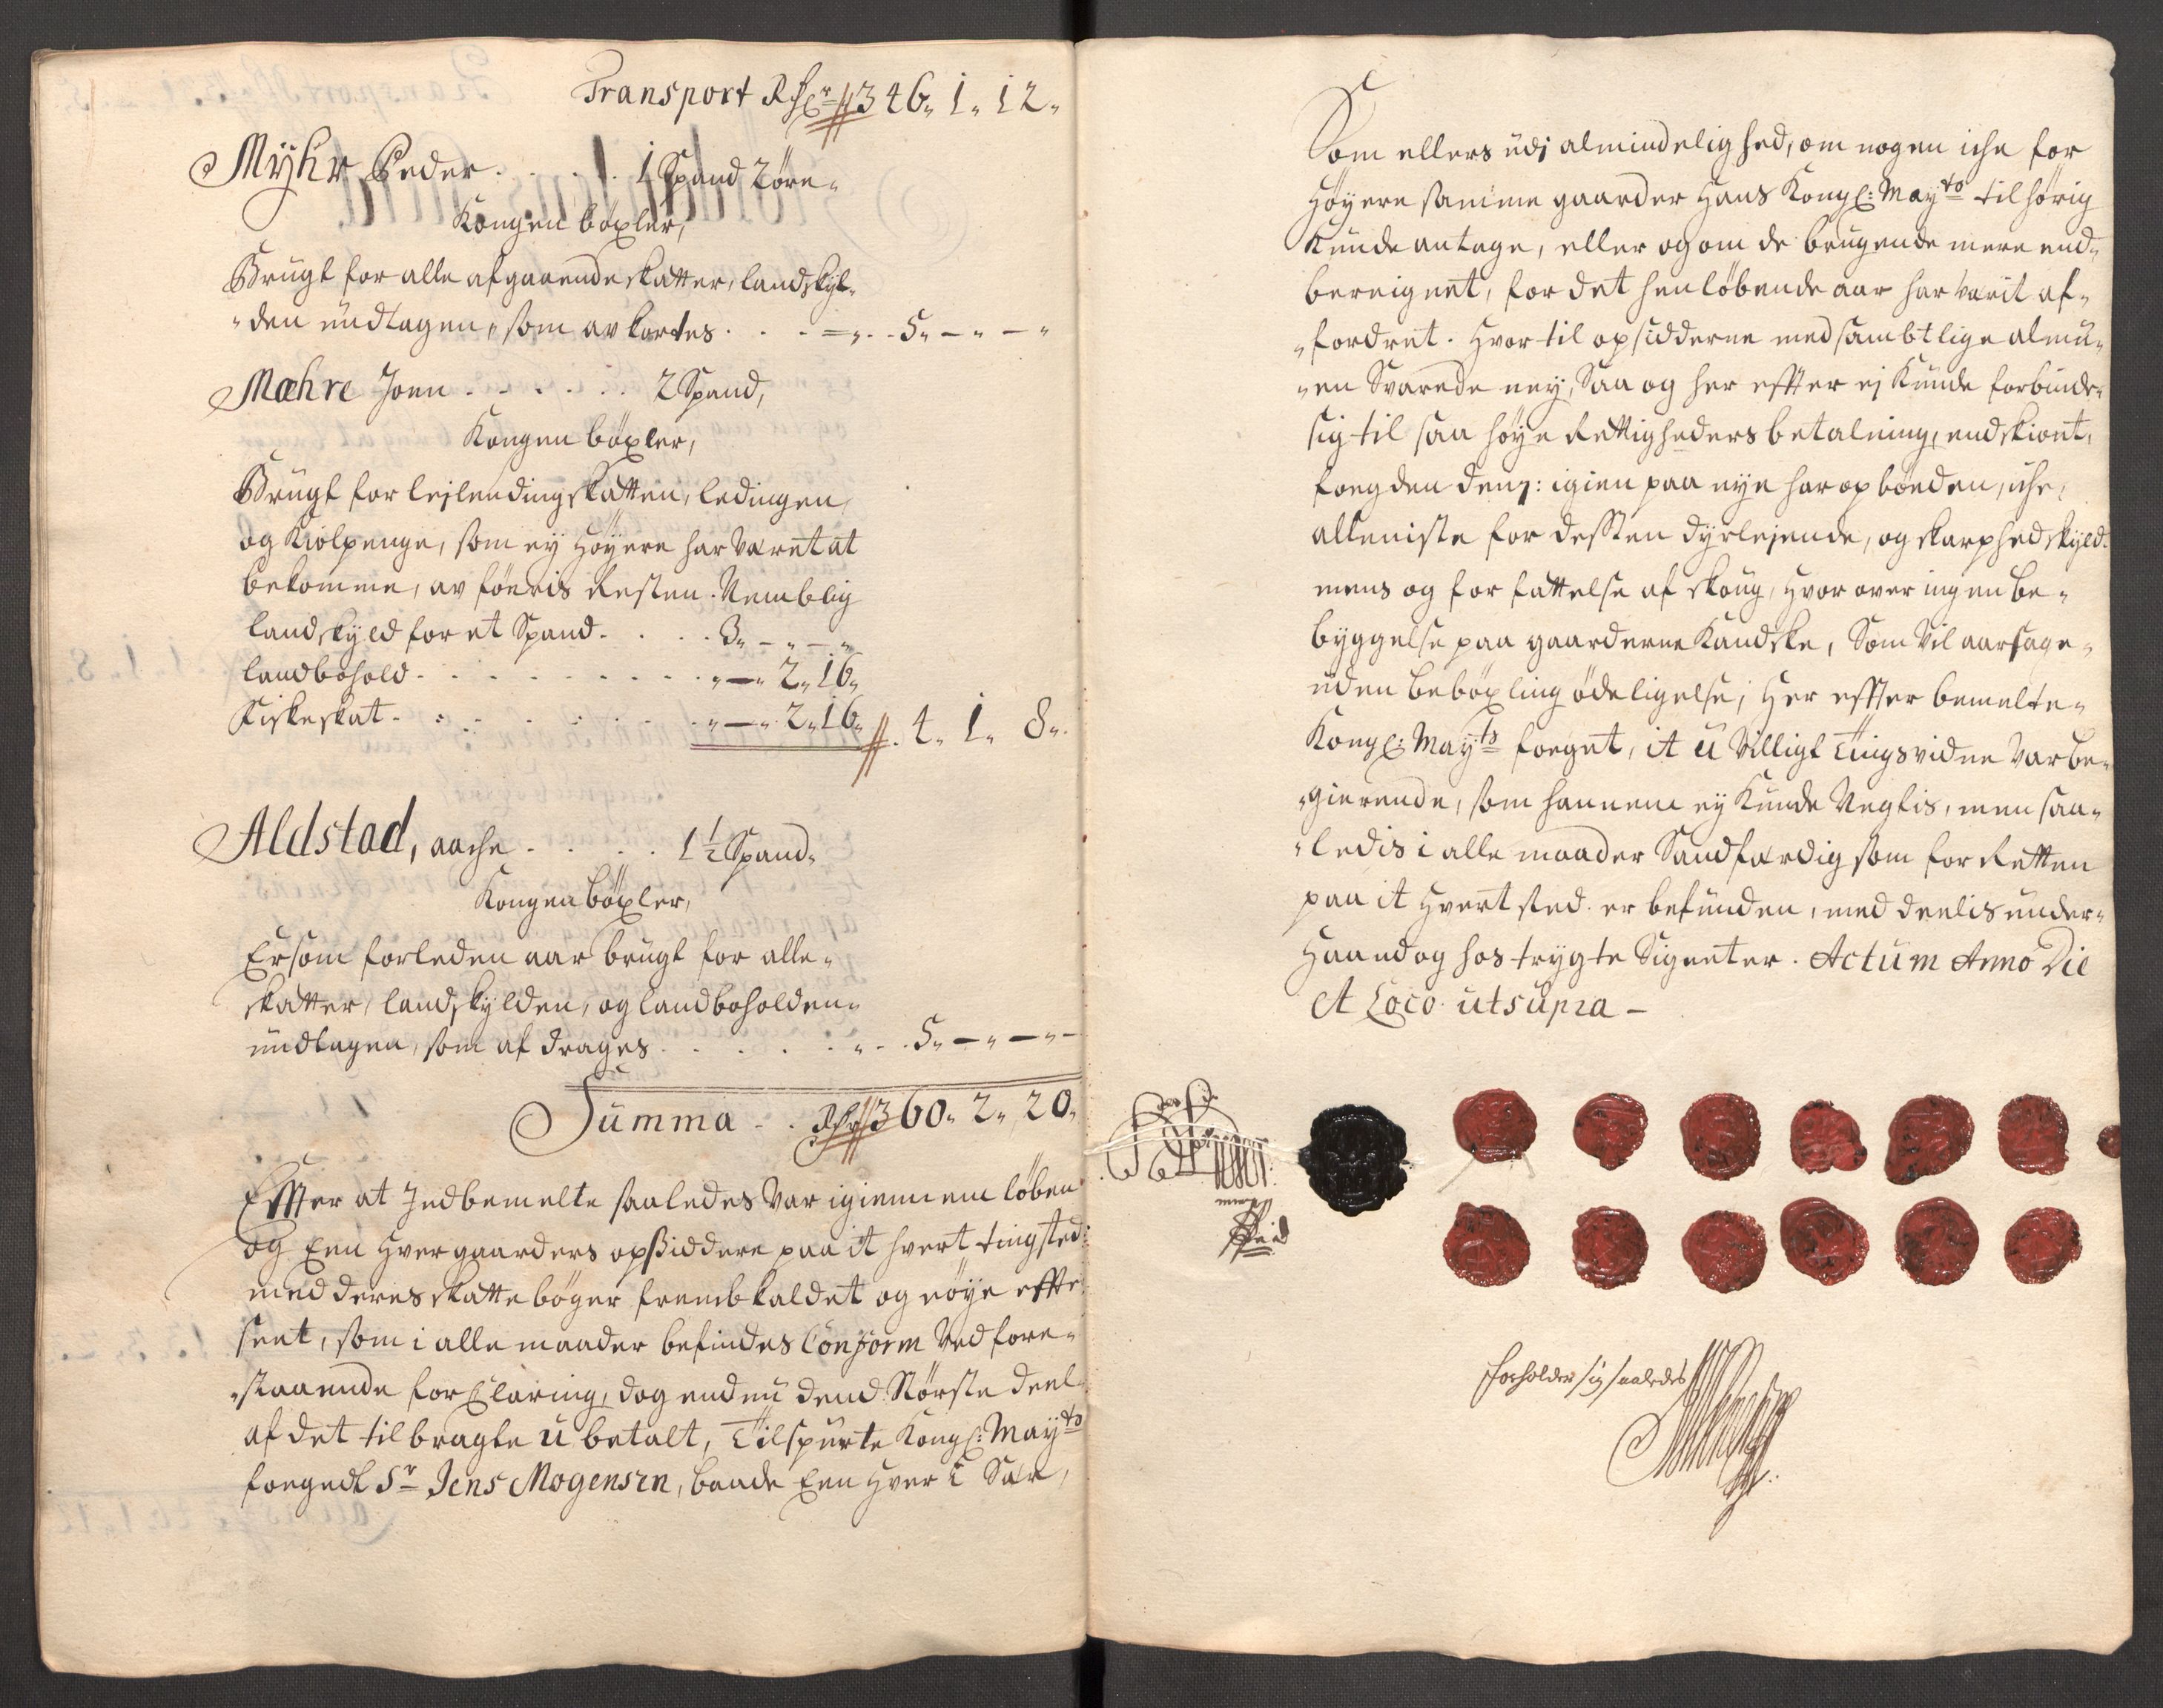 Transport Rdr 346„ 1„ 12„
Myhr Peder . . . . . 1 Spand 2 öre„
Kongen böxler,
Brugt for alle afgaaende skatter, landskyl„
„den undtagen, som avkortes . . . =„ . . 5„ – „ – „
Mæhre Joen . . . . . . 2 Spand,
Kongen böxler,
Brugt for lejlendingskatten, ledingen
og Kiölpenge, som ey höyere har været at
bekomme, av föeris Resten. Nemblig
landskyld for et Spand . . . . . 3„ – „ – „
landbohold . . . . . . . . . . „ – „ 2„ 16„
Fiskeskat . . . . . . . . „ – „ 2„ 16„ . 4„ 1„ 8„
Aldstad, aache . . . . . 1 1/2 Spand„
Kongen böxler,
Er som forleden aar brugt for alle„
skatter, landskylden, og landboholden„
undtagen, som af drages . . . . . . „ . . 5„ – „ – „ –
Summa . . Rdr 360„ 2„ 20„
Effter at Indbemelte saaledes var igiennem löben
og Een hver gaarders opsiddere paa it hvert tingsted:
med deres skatteböger frembkaldet og nöye effter
seet, som i alle maader befindes Conform ved fore„
„staaende forClaring, dog endnu dend Störste deel
af det tilbragte u betalt, Tilspurte Kongl: Mayts
foegedt Sr Jens Mogensen, baade Een hver i Sær,
Som ellers udj almindelighed, om nogen iche for
höyere samme gaarder Hans Kongl: Mayts tilhörig
Kunde antage, eller og om de brugende mere end„
bereignet, for det henlöbende aar har værit af„
„fordret. Hvor til opsidderne med sambtlige almu„
„en Svarede ney, Saa og her effter ej Kunde forbinde„
sig til saa höye Rettigheders betalning, endskiönt,
foegden dem: igien paa nye har opböeden, iche,
alleniste for desten dyrlejende, og skarphed skyld„
mens og for fattelse af skoug, hvor over ingen be„
byggelse paa gaarderne Kand ske, Som vil aarsage„
uden beböxling ödeligelse; Her effter bemelte„
Kongl: Mayts foeget, it u Villigt Tingsvidne var be„
„gierende, som hannem ey Kunde Negtis, men saa„
„ledis i alle maader Sandfærdig som for Retten
paa it hvert sted er befunden, meddeelis under„
Haand og hos trygte Signeter. Actum Anno Die
Et Loco ut supra –
forholder sig saaledes